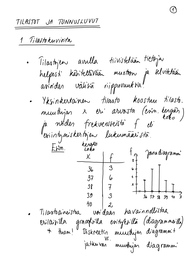 ①
TILASTOT JA TUNNUSLUVUT
1 Tilastokuvioita
• Tilastojen avulla tiivistetään tietoja
helposti käsiteltävään muotoon ja selvitetään
asioiden välisiä riippuvuuksia
• Yksinkertainen tilasto koostuu tilasto-
muuttujan x eri arvoista (esim. kengän koko)
ja niiden frekvensseistä f eli
esiintymiskertojen lukumääristä
Esim kengän koko
x f
36 3
37 6
38 7
39 3
40 2
f janadiagrammi
x
• Tilastoaineistoa voidaan havainnollistaa
erilaisilla graafisilla esityksillä (diagrammeilla)
+ huom! Diskreetin muuttujan diagrammi
vs. jatkuvan muuttujan diagrammi